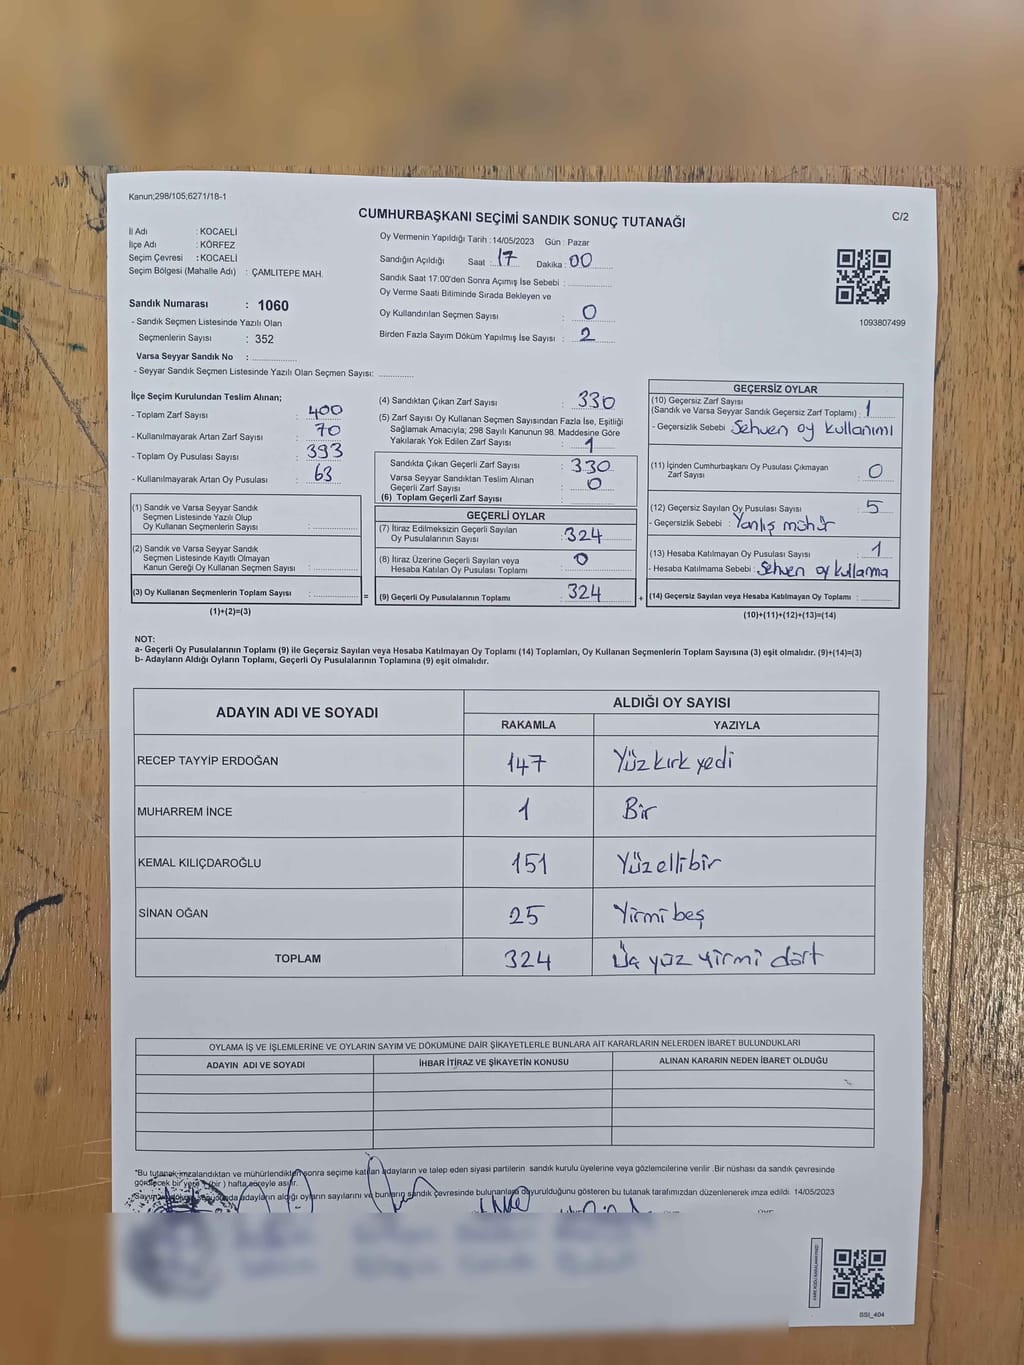 Kanun;298/105;6271/18-1
CUMHURBAŞKANI SEÇİMİ SANDIK SONUÇ TUTANAĞI
C/2
İl Adı : KOCAELİ
İlçe Adı : KÖRFEZ
Seçim Çevresi : KOCAELİ
Seçim Bölgesi (Mahalle Adı) : ÇAMLITEPE MAH.
Sandık Numarası : 1060
- Sandık Seçmen Listesinde Yazılı Olan
Seçmenlerin Sayısı : 352
Varsa Seyyar Sandık No :
- Seyyar Sandık Seçmen Listesinde Yazılı Olan Seçmen Sayısı:
Oy Vermenin Yapıldığı Tarih :14/05/2023 Gün : Pazar
Sandığın Açıldığı Saat : 17 Dakika : 00
Sandık Saat 17:00'den Sonra Açımış İse Sebebi :
Oy Verme Saati Bitiminde Sırada Bekleyen ve
Oy Kullandırılan Seçmen Sayısı : 0
Birden Fazla Sayım Döküm Yapılmış İse Sayısı : 2
1093807499
İlçe Seçim Kurulundan Teslim Alınan;
- Toplam Zarf Sayısı : 400
- Kullanılmayarak Artan Zarf Sayısı : 70
- Toplam Oy Pusulası Sayısı : 393
- Kullanılmayarak Artan Oy Pusulası : 63
(1) Sandık ve Varsa Seyyar Sandık
Seçmen Listesinde Yazılı Olup
Oy Kullanan Seçmenlerin Sayısı :
(2) Sandık ve Varsa Seyyar Sandık
Seçmen Listesinde Kayıtlı Olmayan
Kanun Gereği Oy Kullanan Seçmen Sayısı :
(3) Oy Kullanan Seçmenlerin Toplam Sayısı :
(1)+(2)=(3)
(4) Sandıktan Çıkan Zarf Sayısı : 330
(5) Zarf Sayısı Oy Kullanan Seçmen Sayısından Fazla İse, Eşitliği
Sağlamak Amacıyla; 298 Sayılı Kanunun 98. Maddesine Göre
Yakılarak Yok Edilen Zarf Sayısı : 1
Sandıkta Çıkan Geçerli Zarf Sayısı : 330
Varsa Seyyar Sandıktan Teslim Alınan
Geçerli Zarf Sayısı : 0
(6) Toplam Geçerli Zarf Sayısı :
GEÇERLİ OYLAR
(7) İtiraz Edilmeksizin Geçerli Sayılan
Oy Pusulalarının Sayısı : 324
(8) İtiraz Üzerine Geçerli Sayılan veya
Hesaba Katılan Oy Pusulası Toplamı : 0
= (9) Geçerli Oy Pusulalarının Toplamı : 324 +
GEÇERSİZ OYLAR
(10) Geçersiz Zarf Sayısı
(Sandık ve Varsa Seyyar Sandık Geçersiz Zarf Toplamı) : 1
- Geçersizlik Sebebi : Sehven oy kullanımı
(11) İçinden Cumhurbaşkanı Oy Pusulası Çıkmayan
Zarf Sayısı : 0
(12) Geçersiz Sayılan Oy Pusulası Sayısı : 5
- Geçersizlik Sebebi : Yanlış mühür
(13) Hesaba Katılmayan Oy Pusulası Sayısı : 1
- Hesaba Katılmama Sebebi : Sehven oy kullanma
(14) Geçersiz Sayılan veya Hesaba Katılmayan Oy Toplamı :
(10)+(11)+(12)+(13)=(14)
NOT:
a- Geçerli Oy Pusulalarının Toplamı (9) ile Geçersiz Sayılan veya Hesaba Katılmayan Oy Toplamı (14) Toplamları, Oy Kullanan Seçmenlerin Toplam Sayısına (3) eşit olmalıdır. (9)+(14)=(3)
b- Adayların Aldığı Oyların Toplamı, Geçerli Oy Pusulalarının Toplamına (9) eşit olmalıdır.
ADAYIN ADI VE SOYADI ALDIĞI OY SAYISI
RAKAMLA YAZIYLA
RECEP TAYYİP ERDOĞAN 147 Yüz kırk yedi
MUHARREM İNCE 1 Bir
KEMAL KILIÇDAROĞLU 151 Yüz elli bir
SİNAN OĞAN 25 Yirmi beş
TOPLAM 324 Üç yüz yirmi dört
OYLAMA İŞ VE İŞLEMLERİNE VE OYLARIN SAYIM VE DÖKÜMÜNE DAİR ŞİKAYETLERLE BUNLARA AİT KARARLARIN NELERDEN İBARET BULUNDUKLARI
ADAYIN ADI VE SOYADI İHBAR İTİRAZ VE ŞİKAYETİN KONUSU ALINAN KARARIN NEDEN İBARET OLDUĞU
"Bu tutanak imzalandıktan ve mühürlendikten sonra seçime katılan adayların ve talep eden siyasi partilerin sandık kurulu üyelerine veya gözlemcilerine verilir .Bir nüshası da sandık çevresinde
görülecek bir yere 1(bir ) hafta süreyle asılır.
adayların aldığı oyların sayılarını ve bunların sandık çevresinde bulunanlara duyurulduğunu gösteren bu tutanak tarafımızdan düzenlenerek imza edildi. 14/05/2023
SSI_404